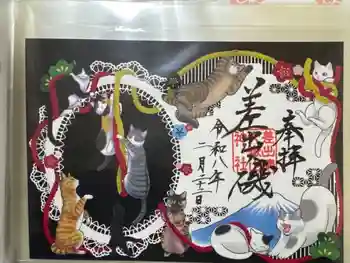 奉拝
差出磯
令和八年
二月二十二日